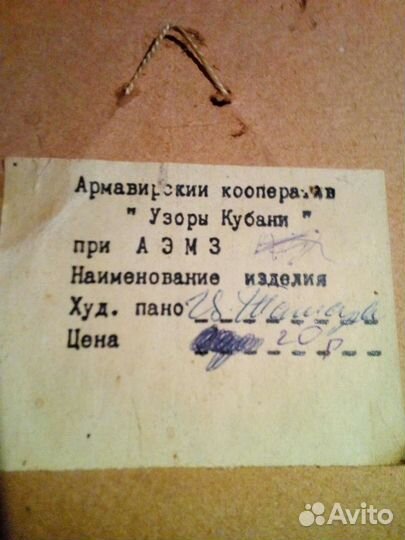 Армавирскии кооператив
" Узоры Кубани "
при А Э М З
Наименование изделия
Худ. пано
Цена 20 р
Avito